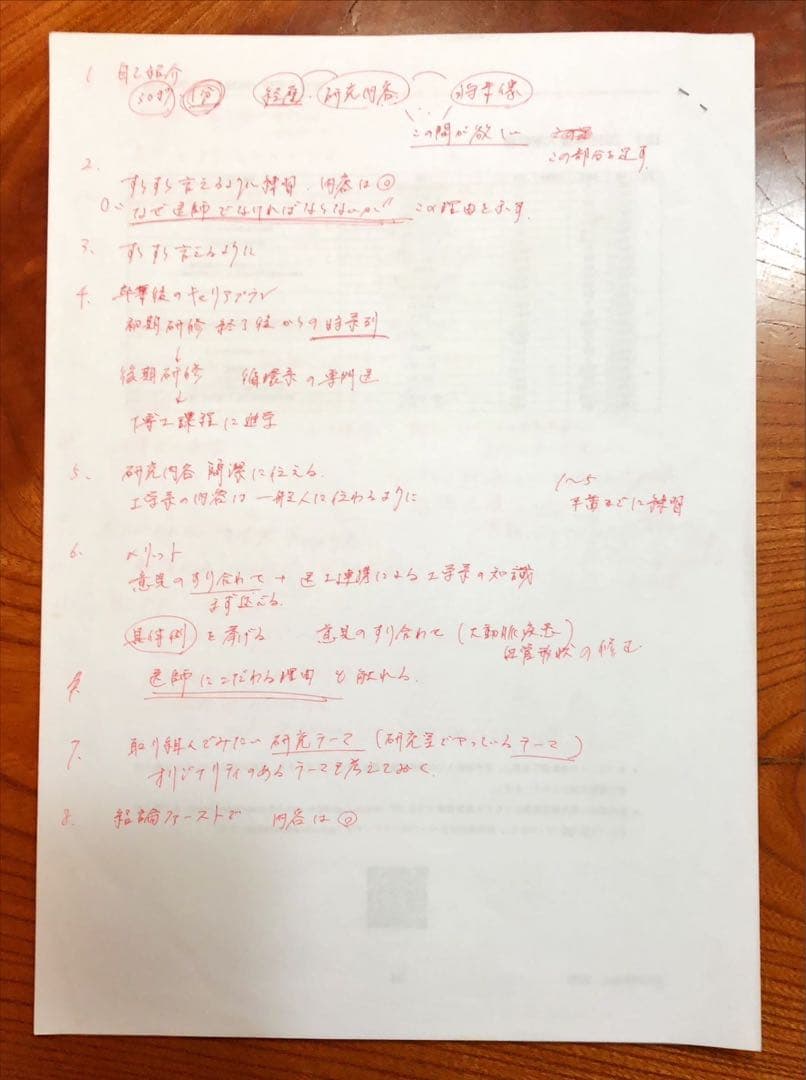 1. 自己紹介
30秒 1分 経歴・研究内容 将来像
この間が欲しい
この部分を足す
2.
すらすら言えるように練習. 内容は◎
"なぜ医師でなければならないか" この理由を示す.
3. すらすら言えるように
4. 卒業後のキャリアプラン
初期研修 終了後からの時系列
↓
後期研修 循環系の専門医
↓
博士課程に進学
5. 研究内容 簡潔に伝える.
工学系の内容は一般人に伝わるように
1〜5
までに練習
6. メリット
意見のすり合わせ → 医工連携による工学系の知識
まず伝える.
具体例 を挙げる 意見のすり合わせ (大動脈疾患)
血管形状の修正
医師にこだわる理由 も触れる.
7. 取り組んでみたい研究テーマ (研究室でやっているテーマ)
オリジナリティのあるテーマを考えておく.
8. 結論ファーストで 内容は◎